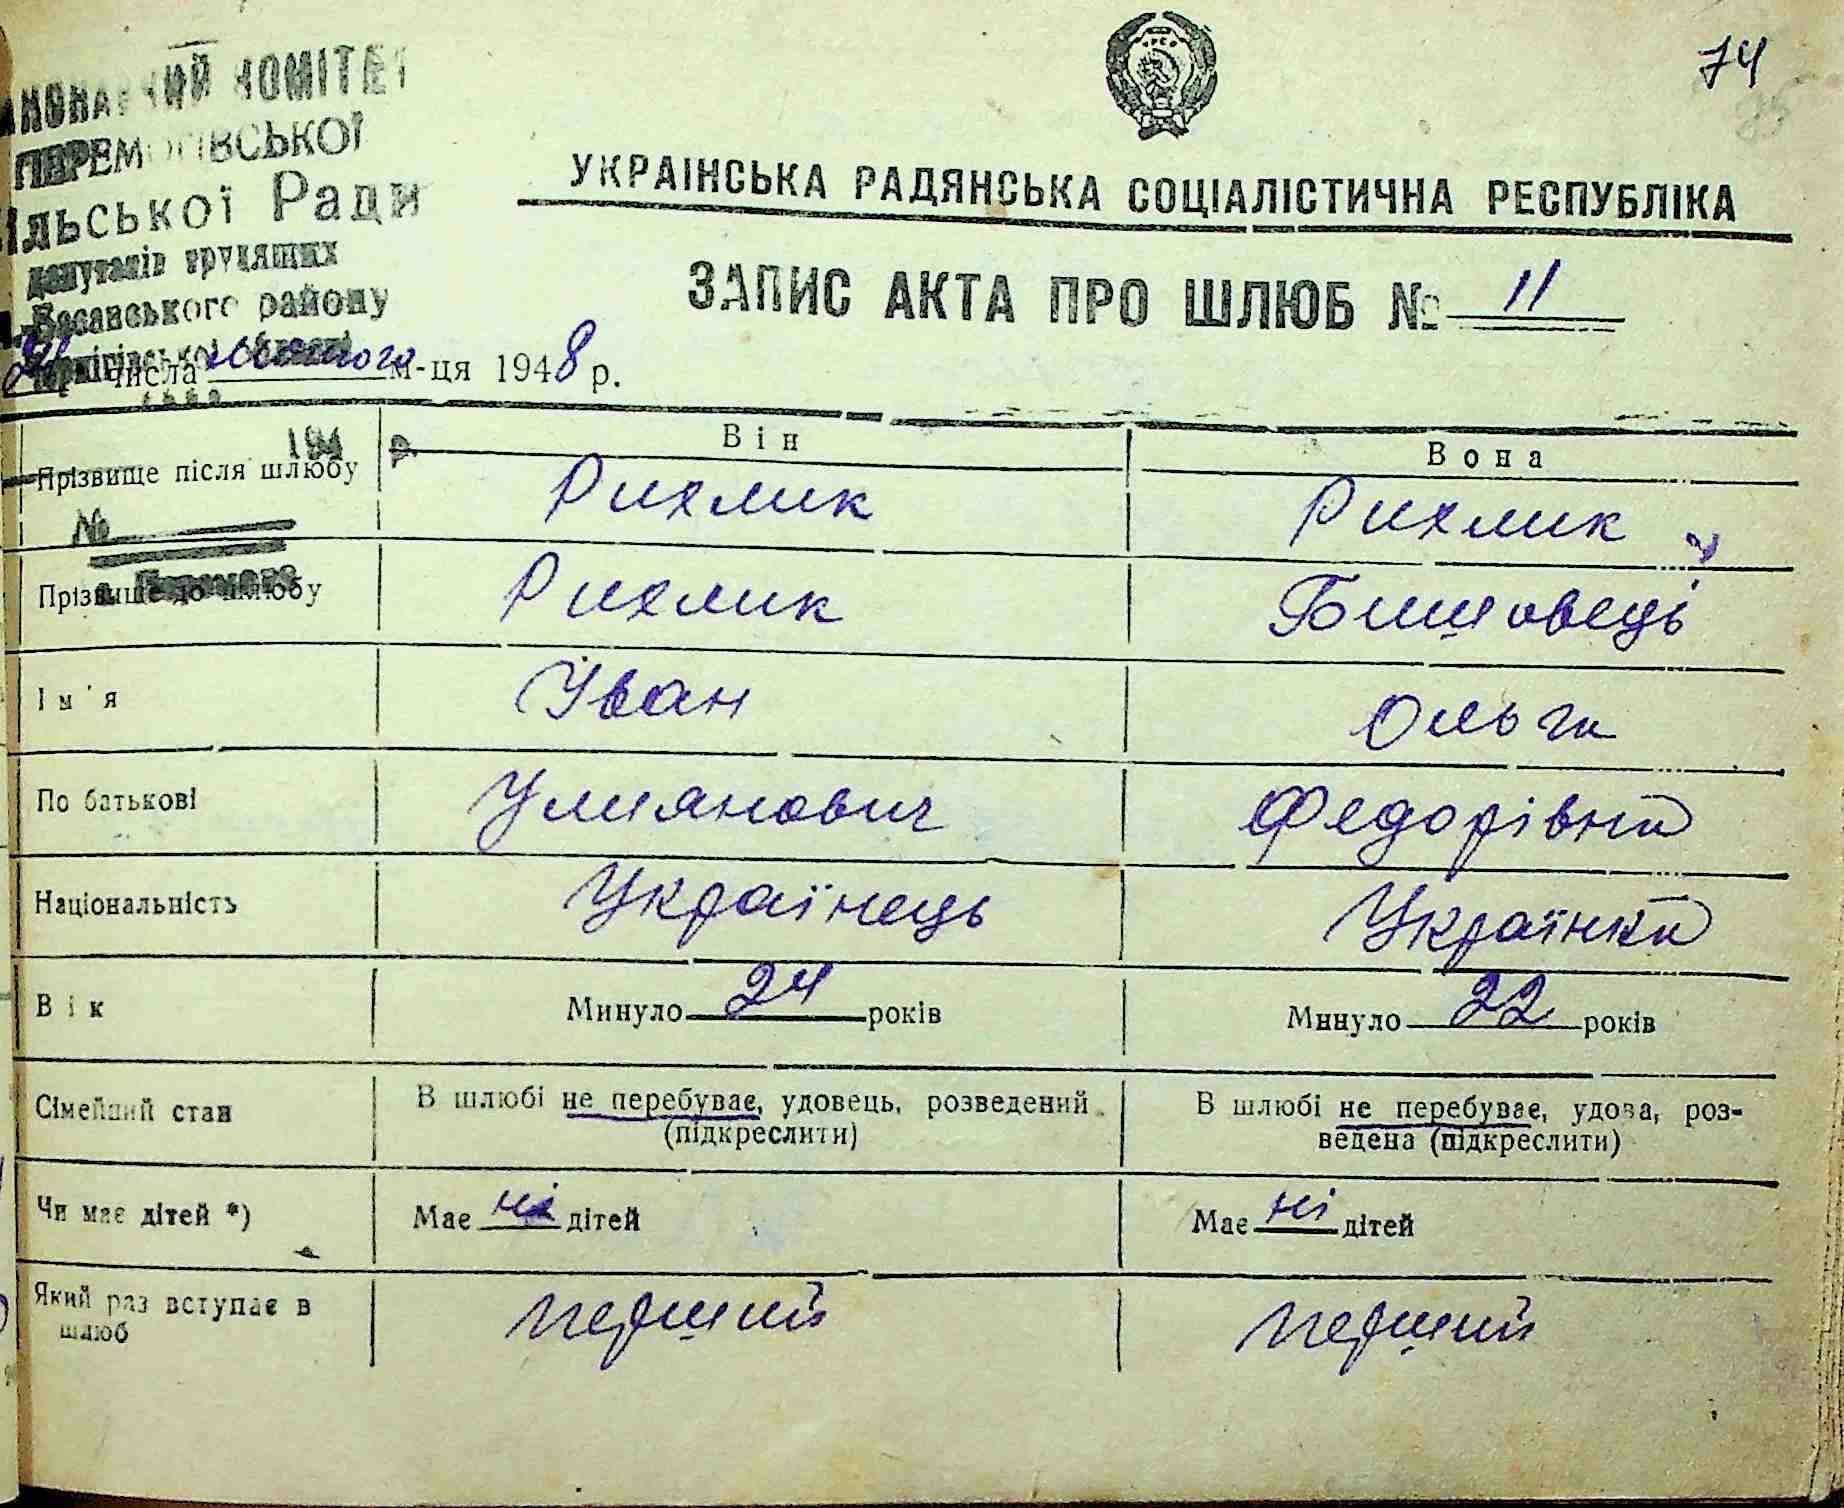 74
85
КОМІТЕТ
ПЕРЕМОГІВСЬКОЇ
ІЛЬСЬКОЇ Ради
депутатів трудящих
району
УКРАЇНСЬКА РАДЯНСЬКА СОЦІАЛІСТИЧНА РЕСПУБЛІКА
ЗАПИС АКТА ПРО ШЛЮБ № 11
числа лютого м-ця 1948 р.
194 р
Він Вона
Прізвище після шлюбу Рихлик Рихлик
№
Прізвище до шлюбу Рихлик Бишовець
Ім'я Іван Ольга
По батькові Улиянович Федорівна
Національність Українець Українка
Вік Минуло 24 років Минуло 22 років
Сімейний стан В шлюбі не перебуває, удовець, розведений В шлюбі не перебуває, удова, роз-
(підкреслити) ведена (підкреслити)
Чи має дітей *) Має ні дітей Має ні дітей
Який раз вступає в перший перший
шлюб